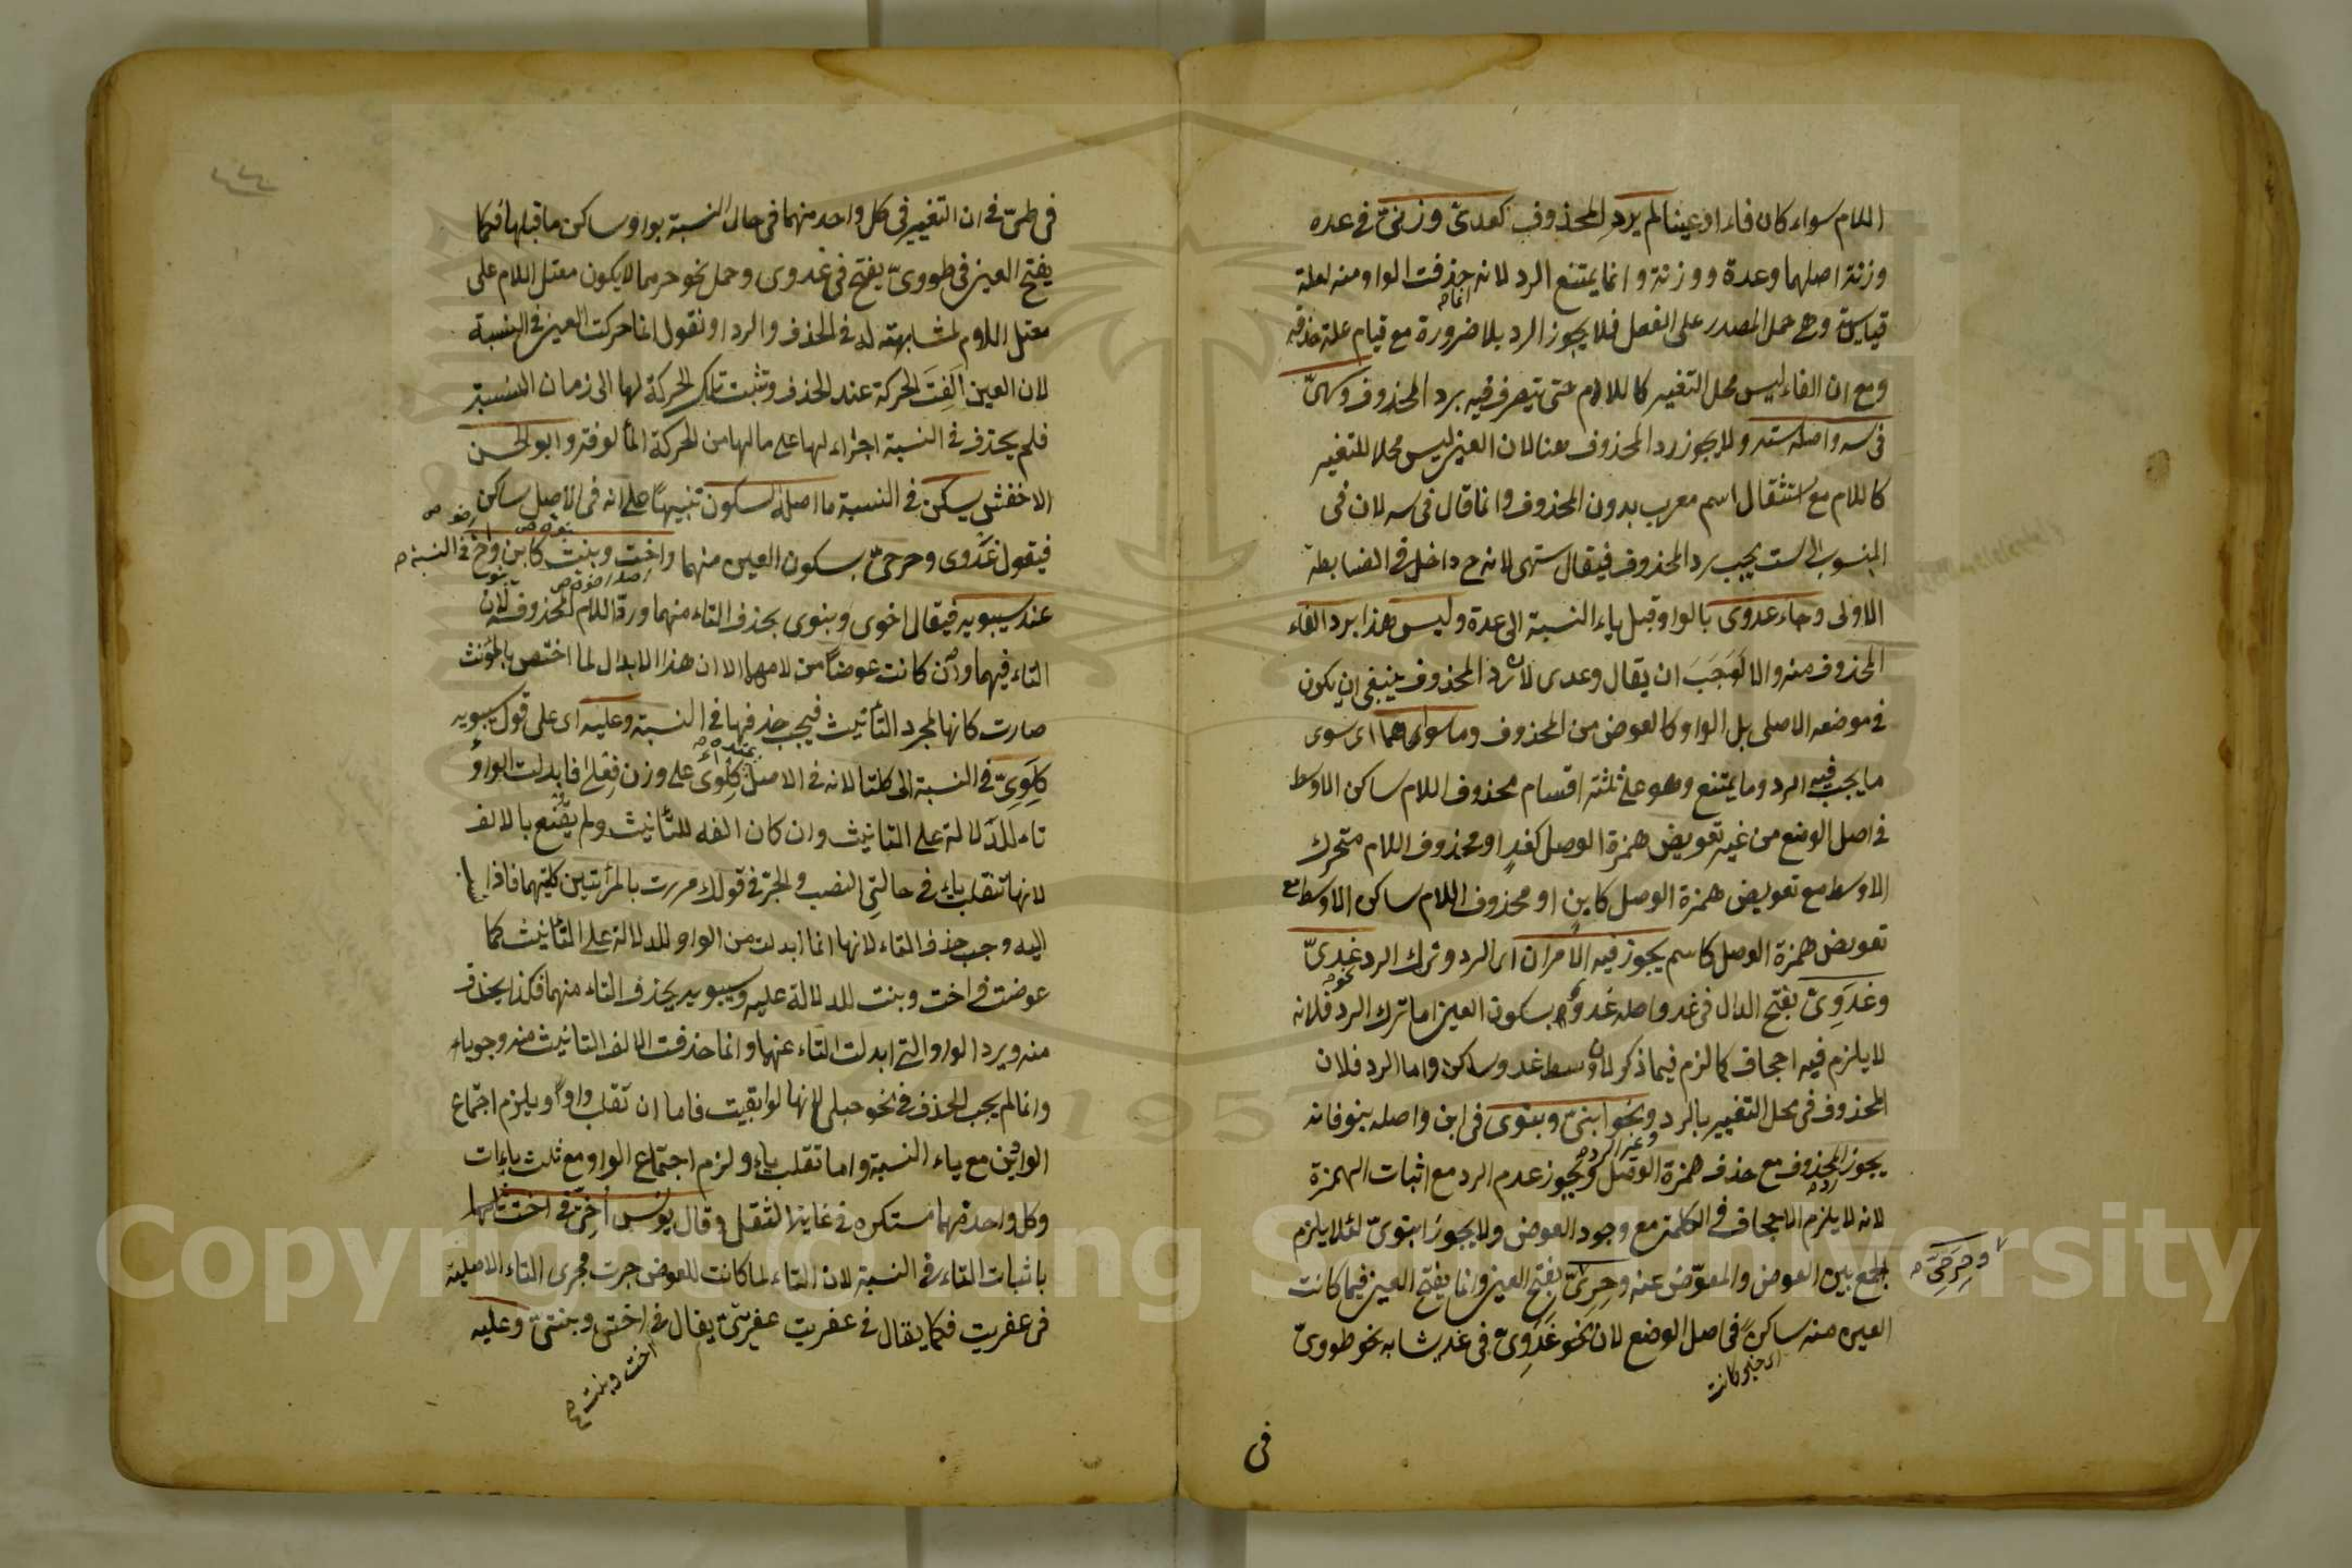 اللام سواء كان فاء او عينا لم يرد المحذوف كعدى وزنى فى عده
وزنة اصلهما وعدة ووزنة وانما يمتنع الرد لانه انما حذفت الواو منه لعلة
قياسية وهى حمل المصدر على الفعل فلا يجوز الرد بلا ضرورة مع قيام علة حذفه
ومع ان الفاء ليس محل التغيير كاللام حتى يتصرف فيه برد المحذوف وكهىّ
فى سه واصله سته ولا يجوز رد المحذوف هنا لان العين ليس محلا للتغيير
كاللام مع استثقال اسم معرب بدون المحذوف وانما قال فى سه لان فى
المنسوب الى ست يجب رد المحذوف فيقال ستهى لانه ح داخل فى الضابطة
الاولى وجاء عدوى بالواو قبل ياء النسبة الى عدة وليس هذا برد الفاء
المحذوف منه والا لوجب ان يقال وعدى لان رد المحذوف ينبغى ان يكون
فى موضعه الاصلى بل الواو كالعوض من المحذوف وما سواهما اى سوى
ما يجب فيه الرد وما يمتنع وهو على ثلثة اقسام محذوف اللام ساكن الاوسط
فى اصل الوضع من غير تعويض همزة الوصل كغد او محذوف اللام متحرك
الاوسط مع تعويض همزة الوصل كابن او محذوف اللام ساكن الاوسط مع
تعويض همزة الوصل كاسم يجوز فيه الامران اى الرد وترك الرد نحو غدىّ
وغدوىّ بفتح الدال فى غد واصله غدو بسكون العين اما ترك الرد فلانه
لا يلزم فيه اجحاف كما لزم فيما ذكر لان وسط غد وساكن واما الرد فلان
المحذوف فى محل التغيير بالرد ونحو ابنى وبنوى فى ابن واصله بنو فانه
يجوز رد المحذوف مع حذف همزة الوصل ويجوز عدم الرد مع اثبات الهمزة
لانه لا يلزم الاجحاف فى الكلمة مع وجود العوض ولا يجوز ابنوىّ لئلا يلزم
الجمع بين العوض والمعوّض عنه وحرىّ بفتح العين وانما يفتح العين فيما كانت
وحرحىّ
العين منه ساكن فى اصل الوضع لان نحو غدوىّ فى غد يشابه نحو طووىّ
فى
فى طىّ فى ان التغيير فى كل واحد منهما فى حال النسبة بواو ساكن ما قبلها فكما
يفتح العين فى طووىّ يفتح فى غدوى وحمل نحو حر مما لا يكون معتل اللام على
معتل اللام لمشابهته له فى الحذف والرد او نقول انما حركت العين فى النسبة
لان العين الفت الحركة عند الحذف وتثبت تلك الحركة لها الى زمان النسبة
فلم يحذف فى النسبة اجراء لها على ما لها من الحركة المألوفة وابو الحسن
الاخفش يسكن فى النسبة ما اصله السكون تنبيها على انه فى الاصل ساكن
فيقول غدوى وحرحىّ بسكون العين منهما واخت وبنت كابن واخ فى النسبة
عند سيبويه فيقال اخوى وبنوى بحذف التاء منهما ورد اللام المحذوفة لان
التاء فيهما وان كانت عوضا من لامهما الا ان هذا الابدال لما اختص بالمؤنث
صارت كانها لمجرد التأنيث فيجب حذفها فى النسبة وعليه اى على قول سيبويه
كلوىّ فى النسبة الى كلتا لانه فى الاصل كلوى على وزن فعلى فابدلت الواو
تاء للدلالة على التانيث وان كان الفه للتأنيث ولم يقنع بالالف
لانها تنقلب ياء فى حالتى النصب والجرّ فى قولك مررت بالمرأتين كلتيهما فاذا
اليه وجب حذف التاء لانها انما ابدلت من الواو للدلالة على التأنيث كما
عوضت فى اخت وبنت للدلالة عليه وسيبويه يحذف التاء منهما فكذا يحذف
منه ويرد الواو التى ابدلت التاء عنها وانما حذفت الالف التانيث منه وجوبا
وانما لم يجب الحذف فى نحو حبلى لانها لو ابقيت فاما ان تقلب واوا ويلزم اجتماع
الواوين مع ياء النسبة واما تقلب ياء ولزم اجتماع الواو مع ثلث ياءات
وكل واحد منهما مستكره فى غاية الثقل وقال يونس اختىّ فى اخت
باثبات التاء فى النسبة لان التاء لما كانت للعوض جرت مجرى التاء الاصلية
فى عفريت فكما يقال فى عفريت عفريتىّ يقال فى اختى وبنتىّ وعليه
اخت وبنت
Copyright © King Saud University
195